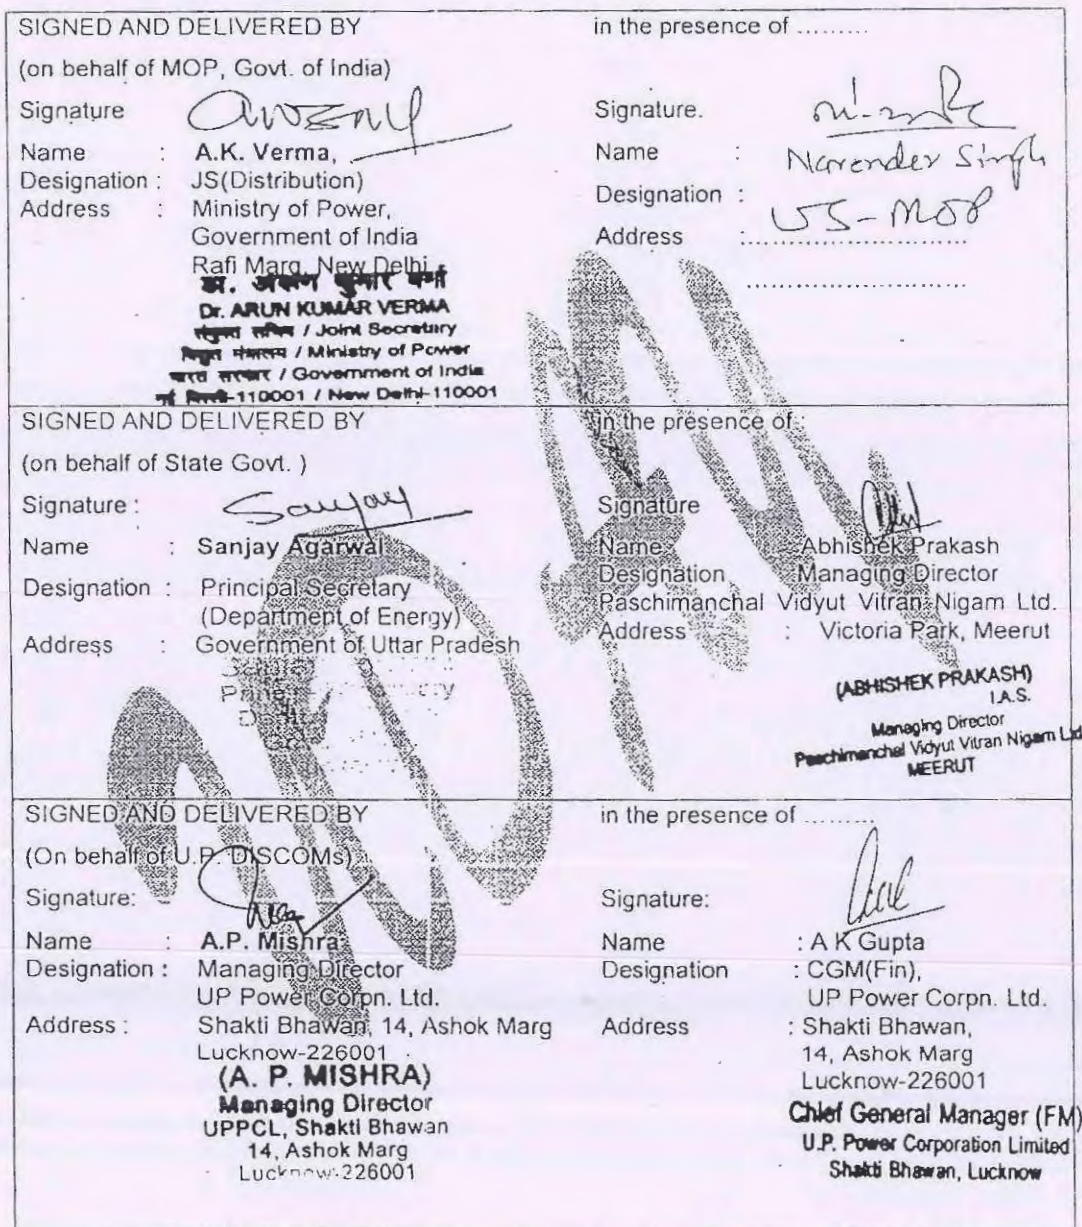 SIGNED AND DELIVERED BY
(on behalf of MOP, Govt. of India)
Signature
Name : A.K. Verma,
Designation : JS(Distribution)
Address : Ministry of Power,
Government of India
Rafi Marg, New Delhi
डा. अरूण कुमार वर्मा
Dr. ARUN KUMAR VERMA
संयुक्त सचिव / Joint Secretary
विद्युत मंत्रालय / Ministry of Power
भारत सरकार / Government of India
नई दिल्ली-110001 / New Delhi-110001
in the presence of .........
Signature.
Name : Narender Singh
Designation : US-MOP
Address :
SIGNED AND DELIVERED BY
(on behalf of State Govt. )
Signature : Sanjay
Name : Sanjay Agarwal
Designation : Principal Secretary
(Department of Energy)
Address : Government of Uttar Pradesh
in the presence of :
Signature
Name : Abhishek Prakash
Designation Managing Director
Paschimanchal Vidyut Vitran Nigam Ltd.
Address : Victoria Park, Meerut
(ABHISHEK PRAKASH)
I.A.S.
Managing Director
Paschimanchal Vidyut Vitran Nigam Ltd
MEERUT
SIGNED AND DELIVERED BY
(On behalf of U.P. DISCOMs)
Signature:
Name : A.P. Mishra
Designation : Managing Director
UP Power Corpn. Ltd.
Address : Shakti Bhawan, 14, Ashok Marg
Lucknow-226001
(A. P. MISHRA)
Managing Director
UPPCL, Shakti Bhawan
14, Ashok Marg
Lucknow-226001
in the presence of .........
Signature:
Name : A K Gupta
Designation : CGM(Fin),
UP Power Corpn. Ltd.
Address : Shakti Bhawan,
14, Ashok Marg
Lucknow-226001
Chief General Manager (FM)
U.P. Power Corporation Limited
Shakti Bhawan, Lucknow